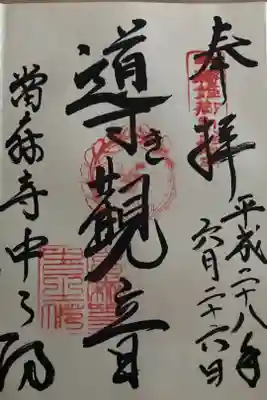 奉拝
平成二十八年
六月二十六日
導き觀音
當麻寺中之坊